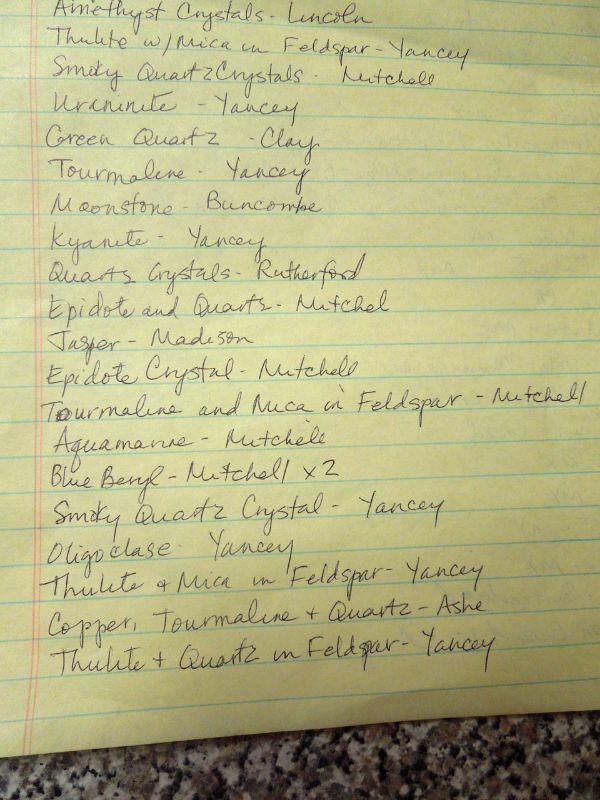 Amethyst Crystals - Lincoln
Thulite w/Mica in Feldspar - Yancey
Smoky Quartz Crystals - Mitchell
Uraninite - Yancey
Green Quartz - Clay
Tourmaline - Yancey
Moonstone - Buncombe
Kyanite - Yancey
Quartz Crystals - Rutherford
Epidote and Quartz - Mitchel
Jasper - Madison
Epidote Crystal - Mitchell
Tourmaline and Mica in Feldspar - Mitchell
Aquamarine - Mitchell
Blue Beryl - Mitchell x2
Smoky Quartz Crystal - Yancey
Oligoclase - Yancey
Thulite + Mica in Feldspar - Yancey
Copper, Tourmaline + Quartz - Ashe
Thulite + Quartz in Feldspar - Yancey